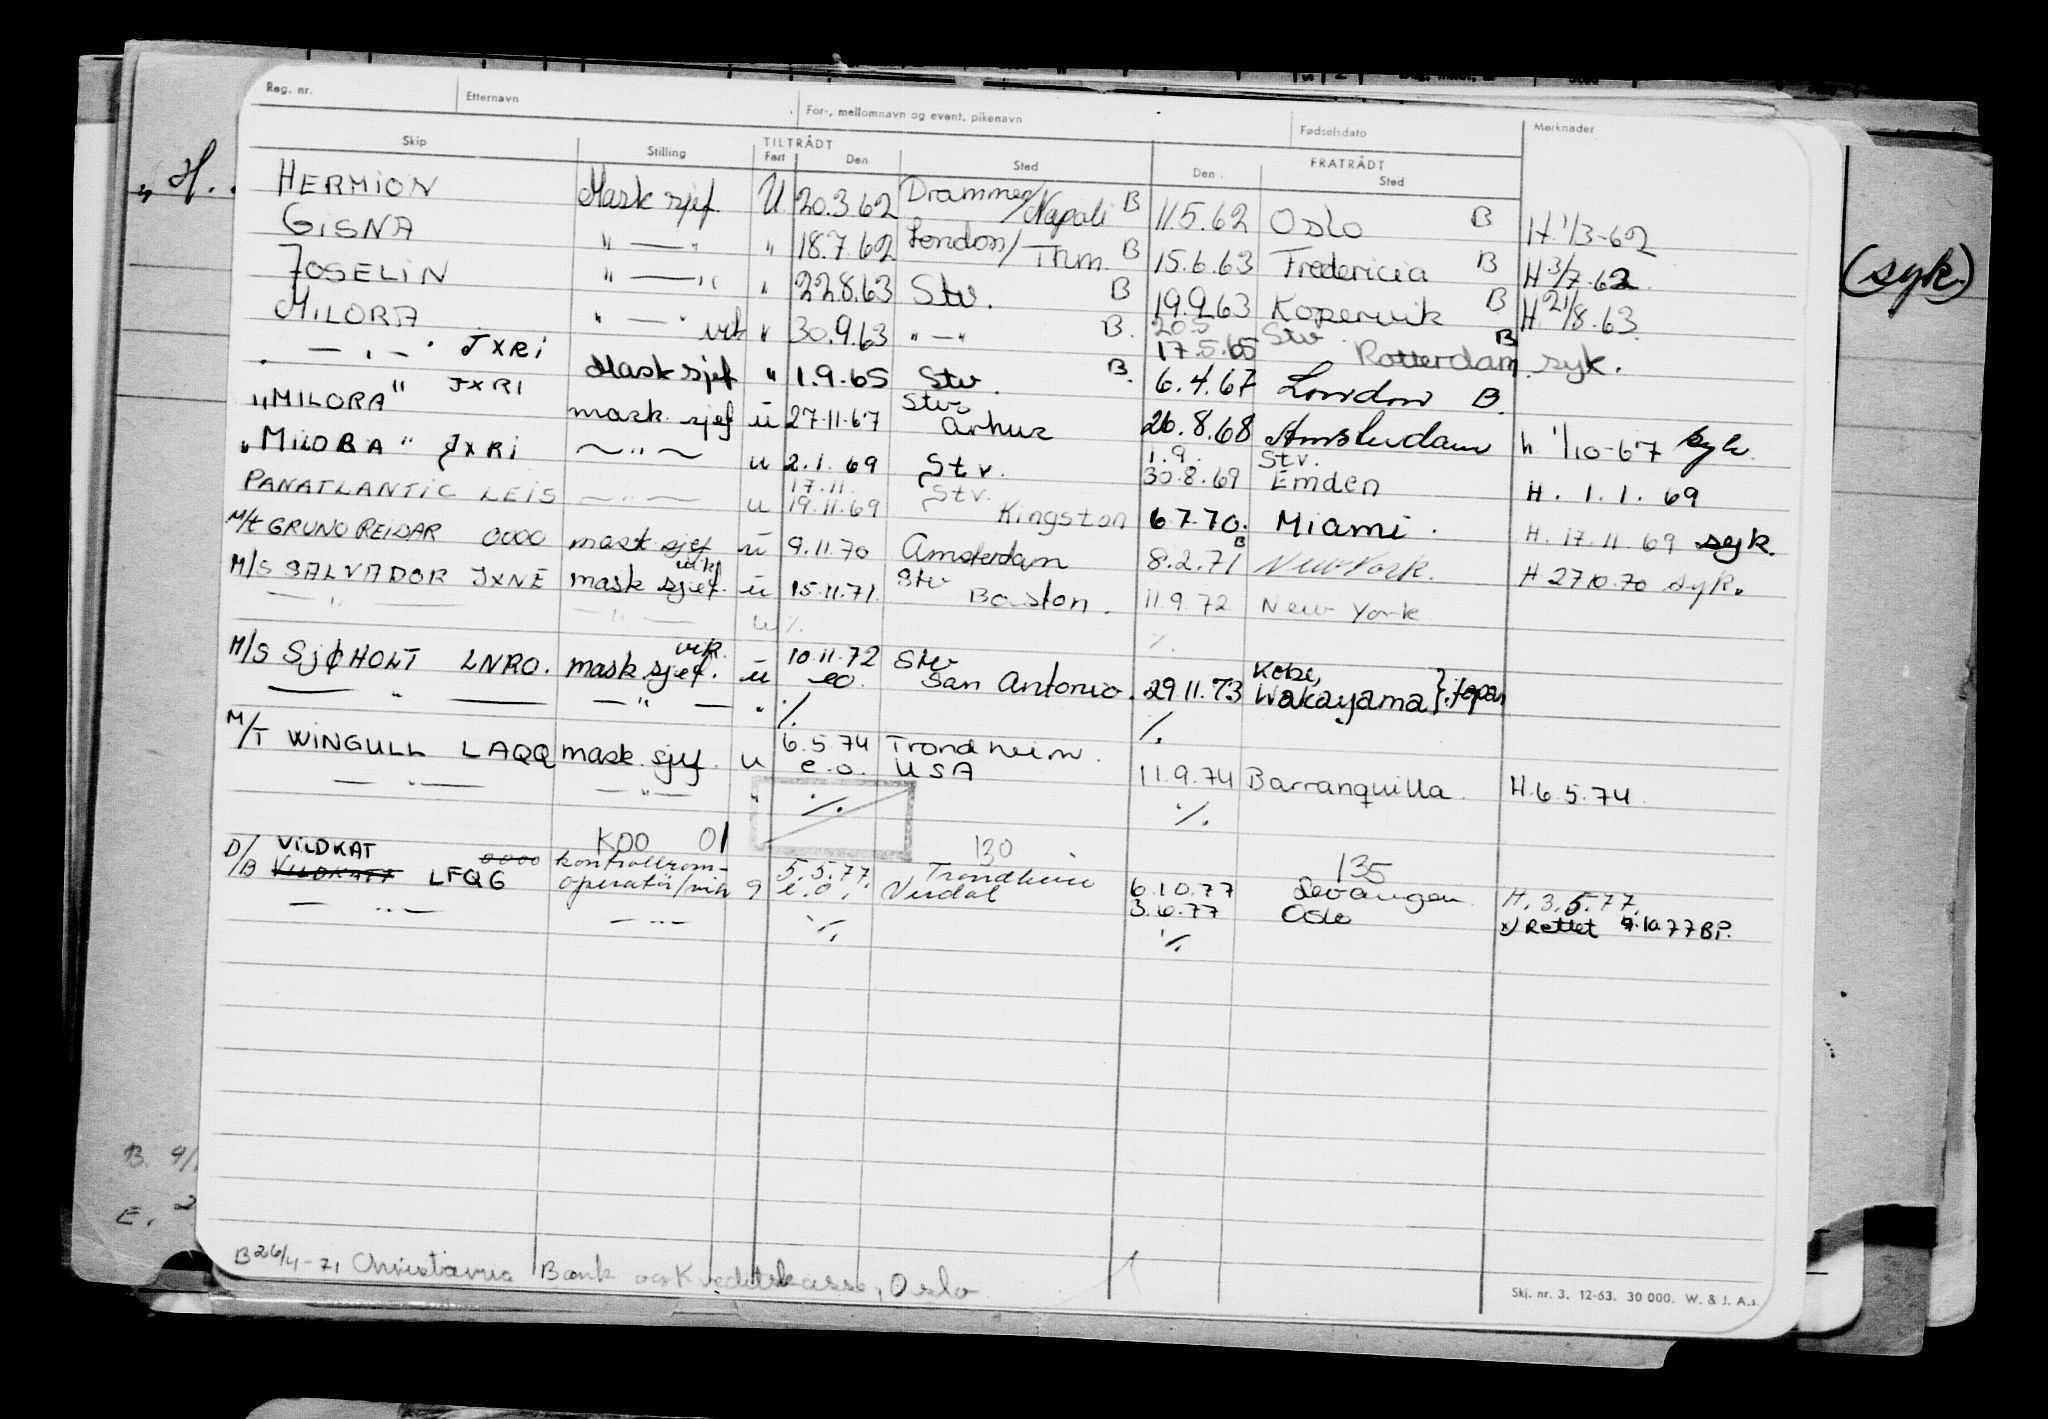 Reg. nr. Etternavn For-, mellomnavn og event. pikenavn Fødselsdato Merknader
Skip Stilling TILTRÅDT Fart Den Sted FRATRÅDT Den Sted
HERMION Mask sjef U 20.3.62 Drammen/Napoli B 11.5.62 Oslo B H.1/3-62
GISNA " — " " 18.7.62 London/Thm. B 15.6.63 Fredericia B H 3/7.62
JOSELIN " — " " 22.8.63 Stv. B 19.9.63 Kopervik B H. 21/8.63
MILORA " — " vik " 30.9.63 " — " B. 20.5 Stv
— " — " JXRI 17.5.65 Rotterdam B syk.
Mask sjef " 1.9.65 Stv. B. 6.4.67 London B.
"MILORA" JXRI mask. sjef u 27.11.67 Stv. Arhus 26.8.68 Amsterdam h 1/10-67 syk.
"MILORA" JXRI ~ " ~ u 2.1.69 Stv. 1.9. Stv. 30.8.69 Emden H. 1.1.69
PANATLANTIC LEIS — " — u 17.11. 19.11.69 Stv. Kingston 6.7.70. Miami. H. 17.11.69 syk.
M/t GRUNO REIDAR 0000 mask sjef u 9.11.70 Amsterdam 8.2.71 B New York. H 27.10.70 syk.
M/S SALVADOR JXNE mask sjef. vik u 15.11.71. Stv Boston. 11.9.72 New York
— " — — " — u ⁒ ⁒
M/S SJØHOLT LNRO. mask sjef. vik. u 10.11.72 eo. Stv San Antonio. 29.11.73 Kobe, Wakayama } Japan
— " — — " — " ⁒ ⁒
M/T WINGULL LAQQ mask. sjef. u 6.5.74 e.o. Trondheim. USA 11.9.74 Barranquilla. H. 6.5.74
— " — — " — " ⁒ ⁒
K00 01 130 135
D/B VILDKAT LFQG 0000 kontrollrom- operatör/vik 9 5.5.77. e.o. Trondheim Verdal 6.10.77 Levanger H. 3.5.77.
3.6.77 Oslo x) Rettet 9.10.77 BP.
— " — — " — ⁒ ⁒
B 26/4-71 Christiania Bank og Kreditkasse, Oslo
Skj. nr. 3. 12-63. 30 000. W. & J. A.s.
" H..
(syk.)
B. 9/
E. 2